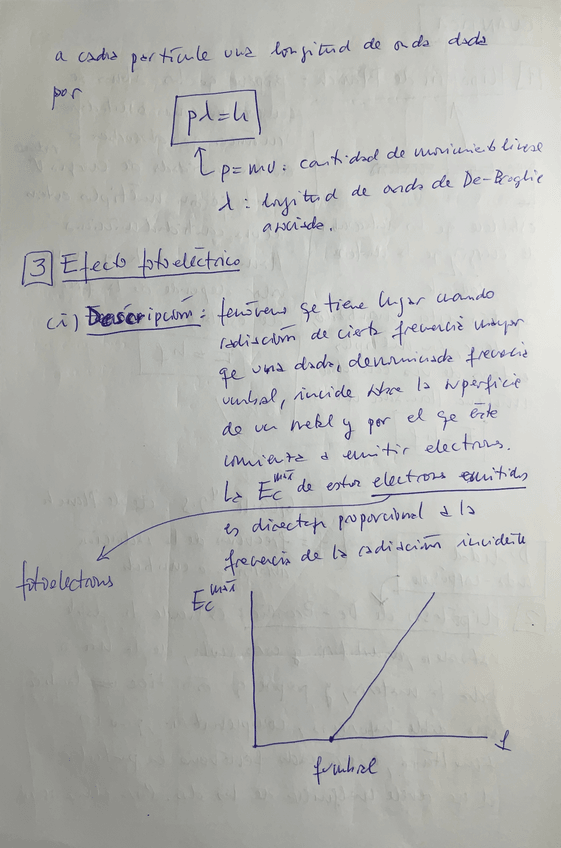 a cada partícule una longitud de onda dada
por
pλ=h
p=mv: cantidad de movimiento lineal
λ: longitud de onda de De-Broglie
asociada.
3 Efecto fotoeléctrico
(i) Descripción: fenómeno qe tiene lugar cuando
radiación de cierta frecuencia mayor
qe una dada, denominada frecuencia
umbral, incide sobre la superficie
de un metal y por el qe éste
comienza a emitir electrons.
La Ec máx de estos electrons emitidos
es directa/ proporcional a la
frecuencia de la radiación incidente
fotoelectrons
Ec máx
f
fumbral